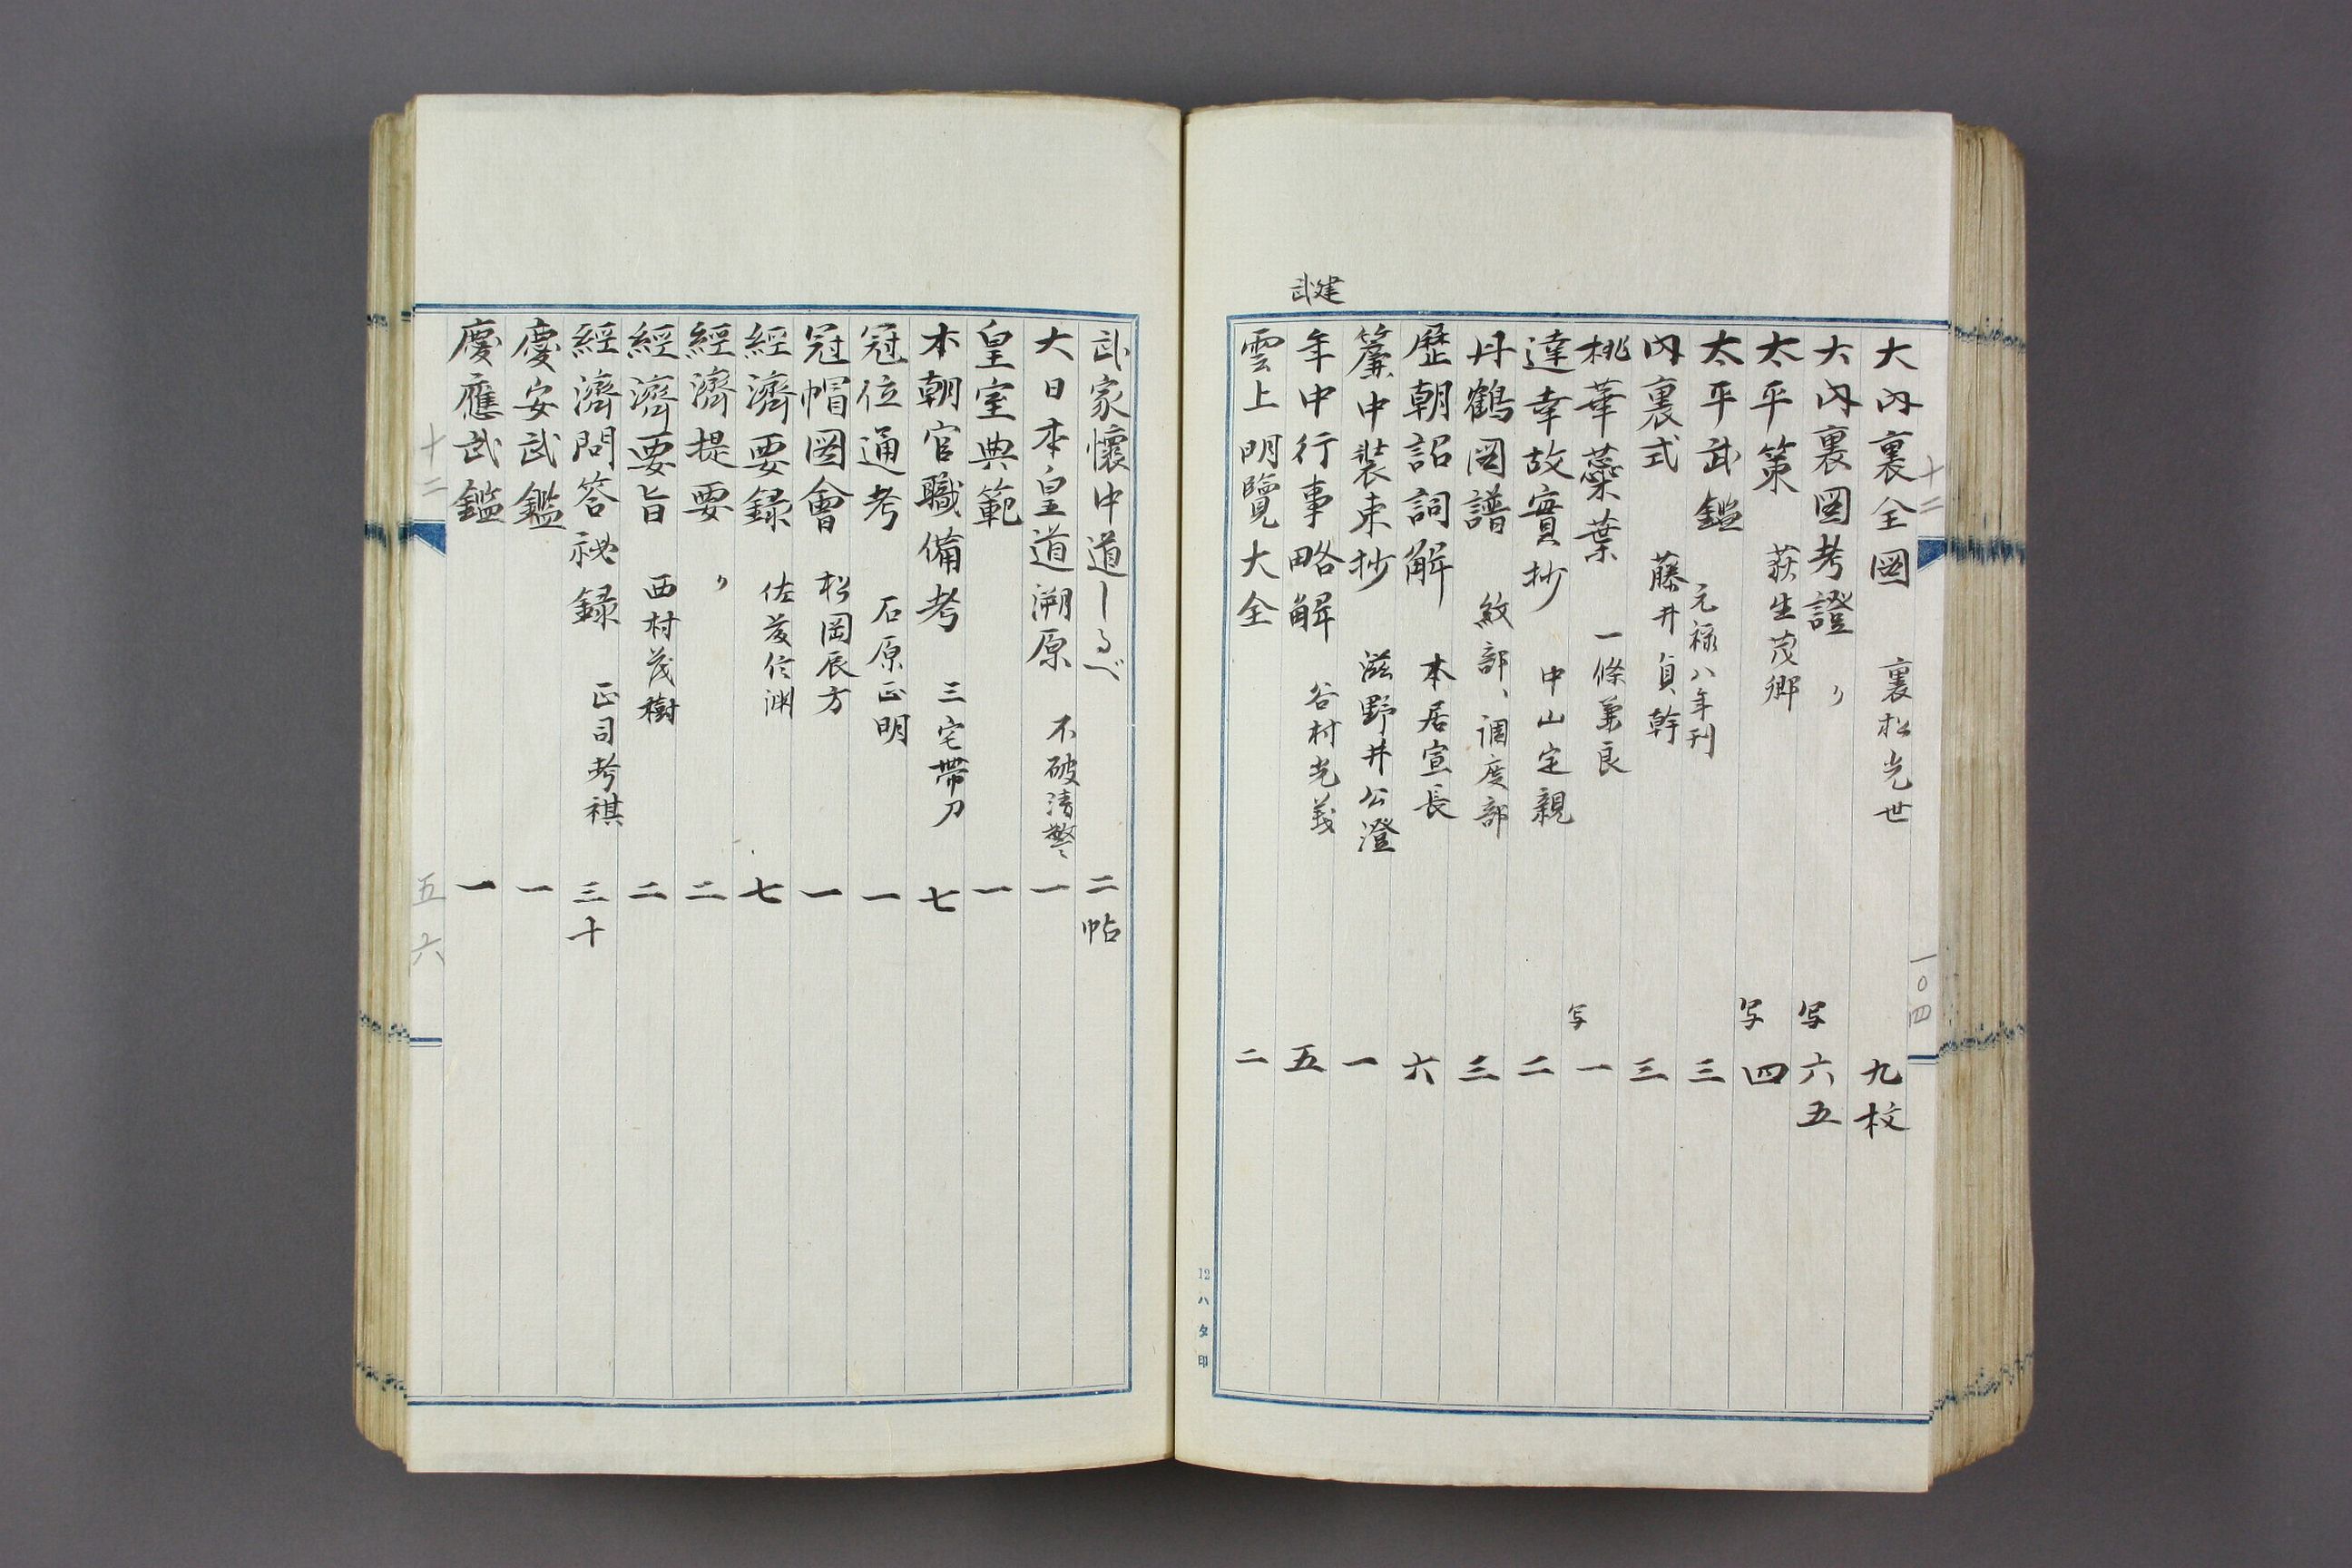 大内裏全図 裏松光世 九枚
大内裏図考證 〃 写 六五
太平策 荻生茂卿 写 四
太平武鑑 元禄八年刊 三
内裏式 藤井貞幹 三
桃華蘂葉 一條兼良 写 一
達幸故實抄 中山定親 二
丹鶴図譜 紋部、調度部 三
歴朝詔詞解 本居宣長 六
簾中装束抄 滋野井公澄 一
建武
年中行事略解 谷村光義 五
雲上明覽大全 二
十二
一〇四
12ハタ印
武家懐中道しるべ 二帖
大日本皇道溯原 不破清警 一
皇室典範 一
本朝官職備考 三宅帶刀 七
冠位通考 石原正明 一
冠帽図會 松岡辰方 一
經濟要録 佐藤信渊 七
經濟提要 〃 二
經濟要旨 西村茂樹 二
經濟問答祕録 正司考祺 三十
慶安武鑑 一
慶應武鑑 一
十二
五六